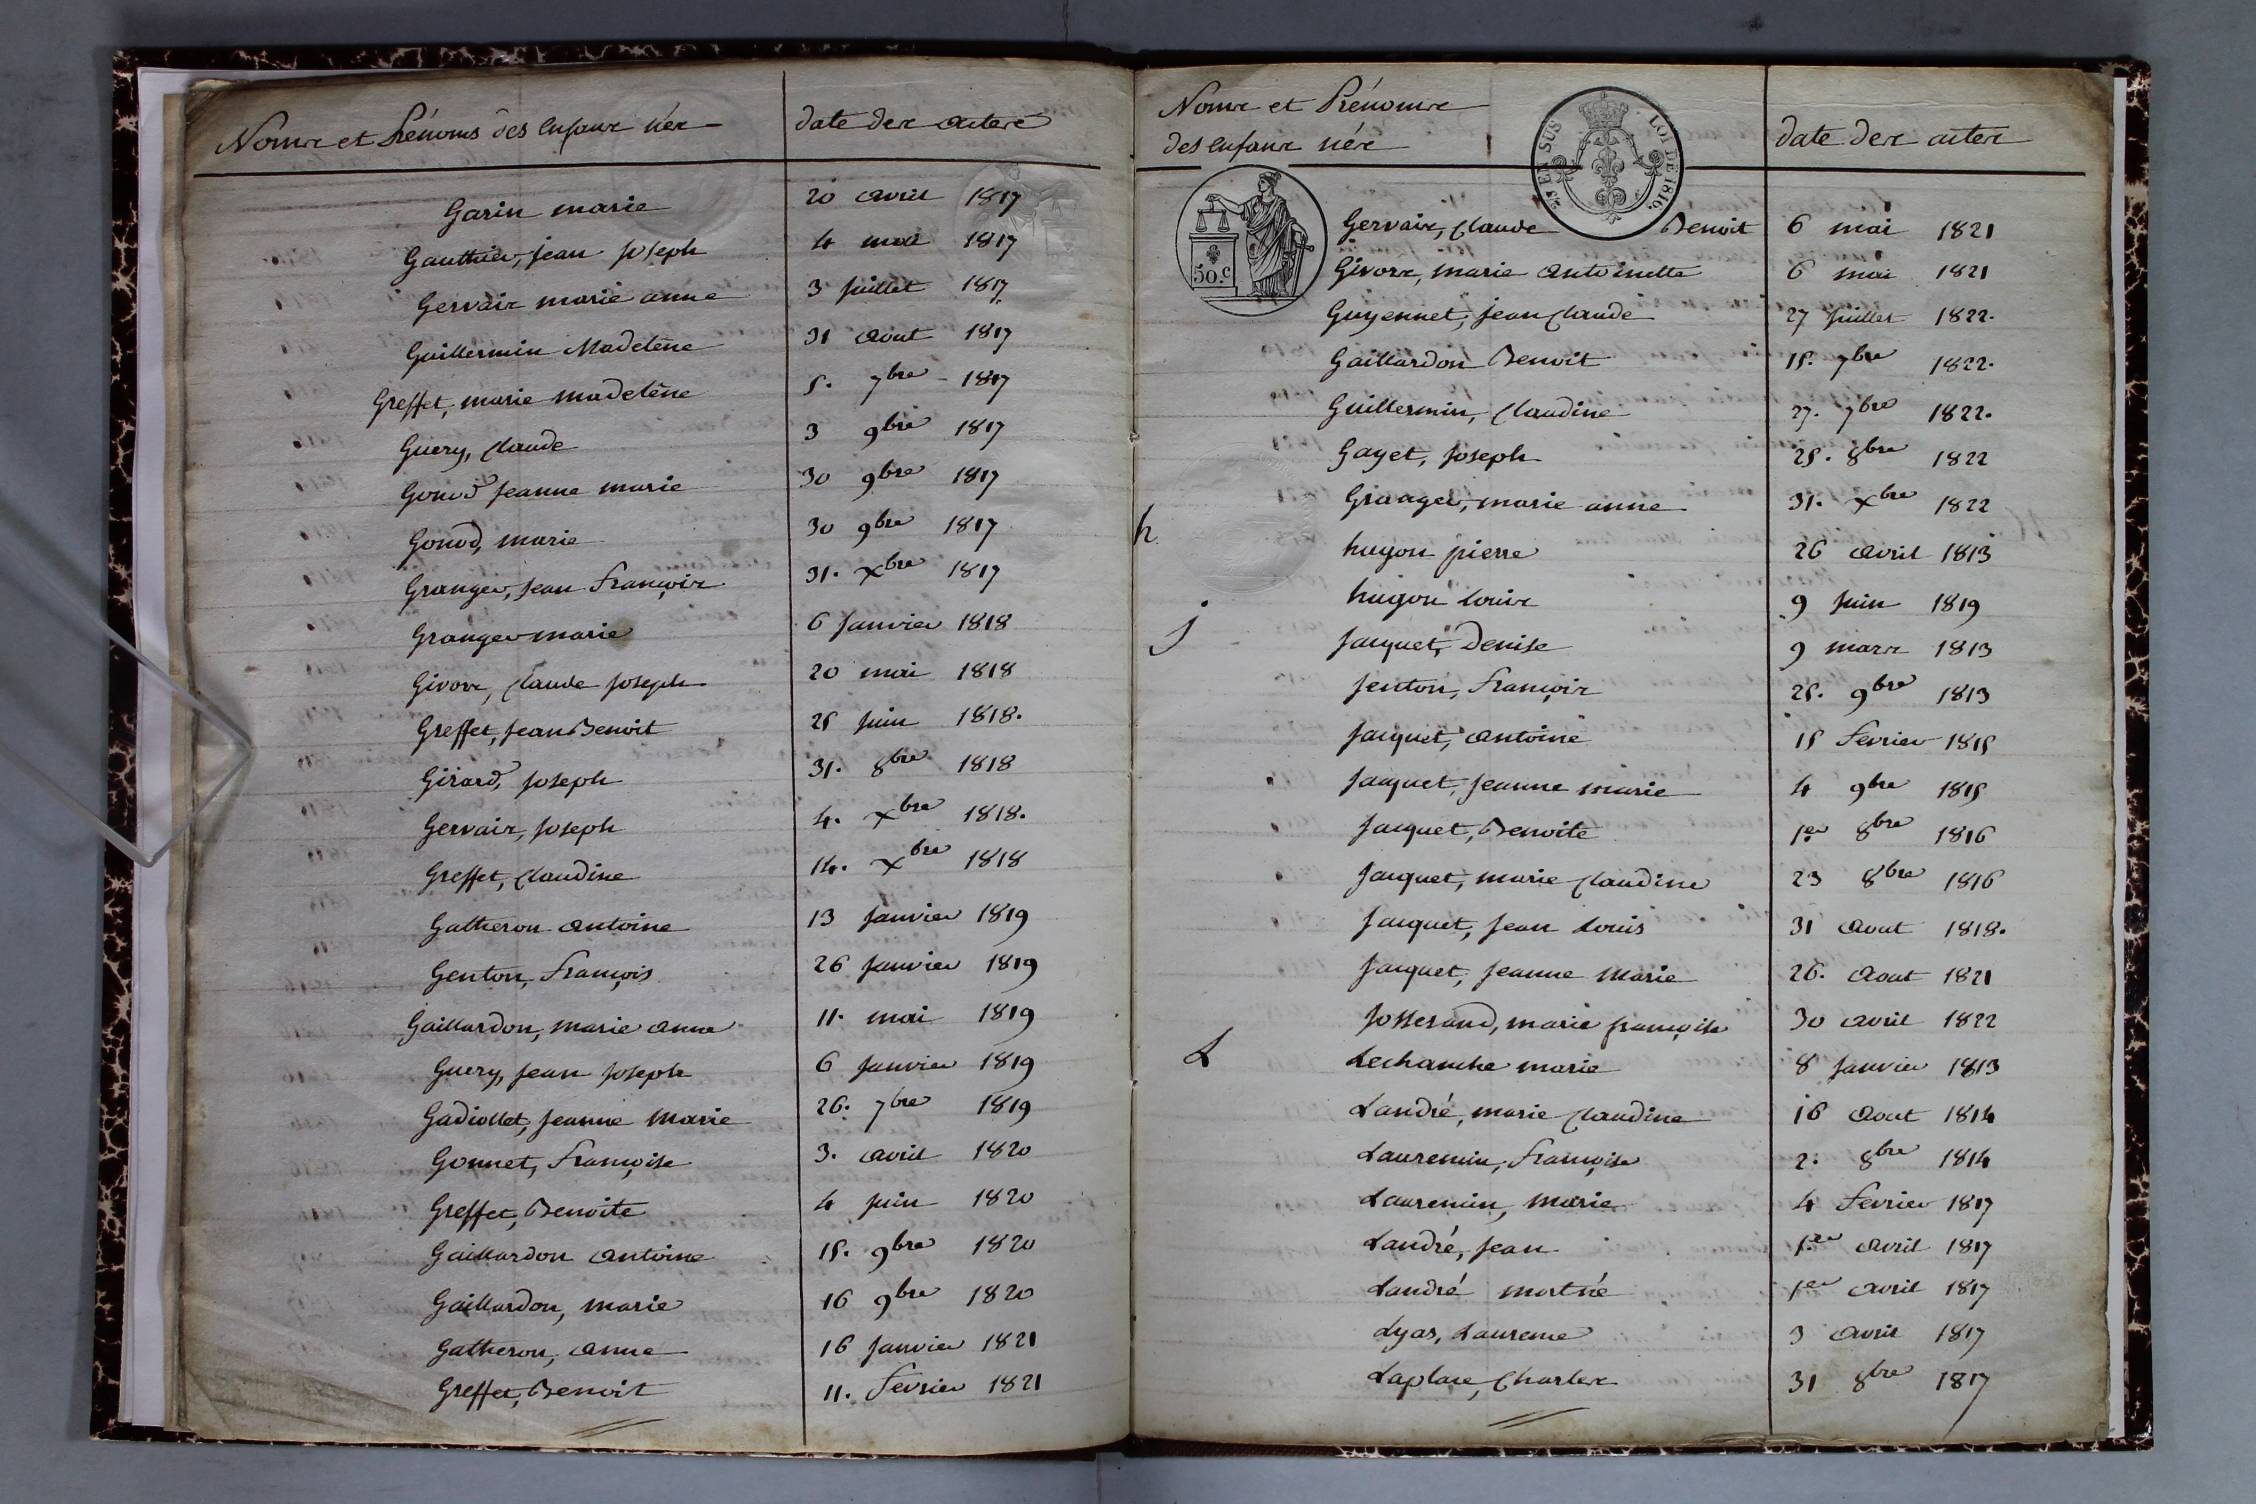 Noms et Prénoms des Enfans nés
date des actes
Garin marie 20 avril 1817
Gauthier, jean joseph 4 mai 1817
Gervais marie anne 3 juillet 1817
Guillermin Madelène 31 aout 1817
Greffet, marie madelène 5. 7bre 1817
Guery, Claude 3 9bre 1817
Gonod jeanne marie 30 9bre 1817
Gonod, marie 30 9bre 1817
Granger, jean François 31. Xbre 1817
Granger marie 6 janvier 1818
Givors, Claude joseph 20 mai 1818
Greffet, jean Benoit 25 juin 1818.
Girard, joseph 31. 8bre 1818
Gervais, joseph 4. Xbre 1818.
Greffet, Claudine 14. Xbre 1818
Gatheron antoine 13 janvier 1819
Genton, François 26 janvier 1819
Gaillardon, marie anne 11. mai 1819
Guery, jean joseph 6 janvier 1819
Gadiollet, jeanne marie 26. 7bre 1819
Gonnet, Françoise 3. avril 1820
Greffet, Benoite 4 juin 1820
Gaillardon antoine 15. 9bre 1820
Gaillardon, marie 16 9bre 1820
Gatheron, anne 16 janvier 1821
Greffet, Benoit 11. Fevrier 1821
Noms et Prénoms
des Enfans nés
date des actes
EN SUS
LOI DE 1816.
50.c
Gervais, Claude Benoit 6 mai 1821
Givors, marie antoinette 6 mai 1821
Guyennet, jean Claude 27 juillet 1822.
Gaillardon Benoit 15. 7bre 1822.
Guillermin, Claudine 27. 7bre 1822.
Gayet, joseph 25. 8bre 1822
Granger, marie anne 31. Xbre 1822
h. hugon pierre 26 avril 1813
hugon Louis 9 juin 1819
J Jacquet, Denise 9 mars 1813
Jenton, François 25. 9bre 1813
Jacquet, antoine 15 Fevrier 1815
Jacquet, jeanne marie 4 9bre 1815
Jacquet, Benoite 1er 8bre 1816
Jacquet, marie Claudine 23 8bre 1816
Jacquet, jean Louis 31 aout 1818.
Jacquet, jeanne marie 26. aout 1821
Josserand, marie françoise 30 avril 1822
L Lechanche marie 8 janvier 1813
Landré, marie Claudine 16 aout 1814
Laurencin, Françoise 2. 8bre 1814
Laurencin, marie 4 Fevrier 1817
Landré, jean 1er avril 1817
Landré mortné 1er avril 1817
Lyas, Laurence 3 avril 1817
Laplace, Charles 31 8bre 1817